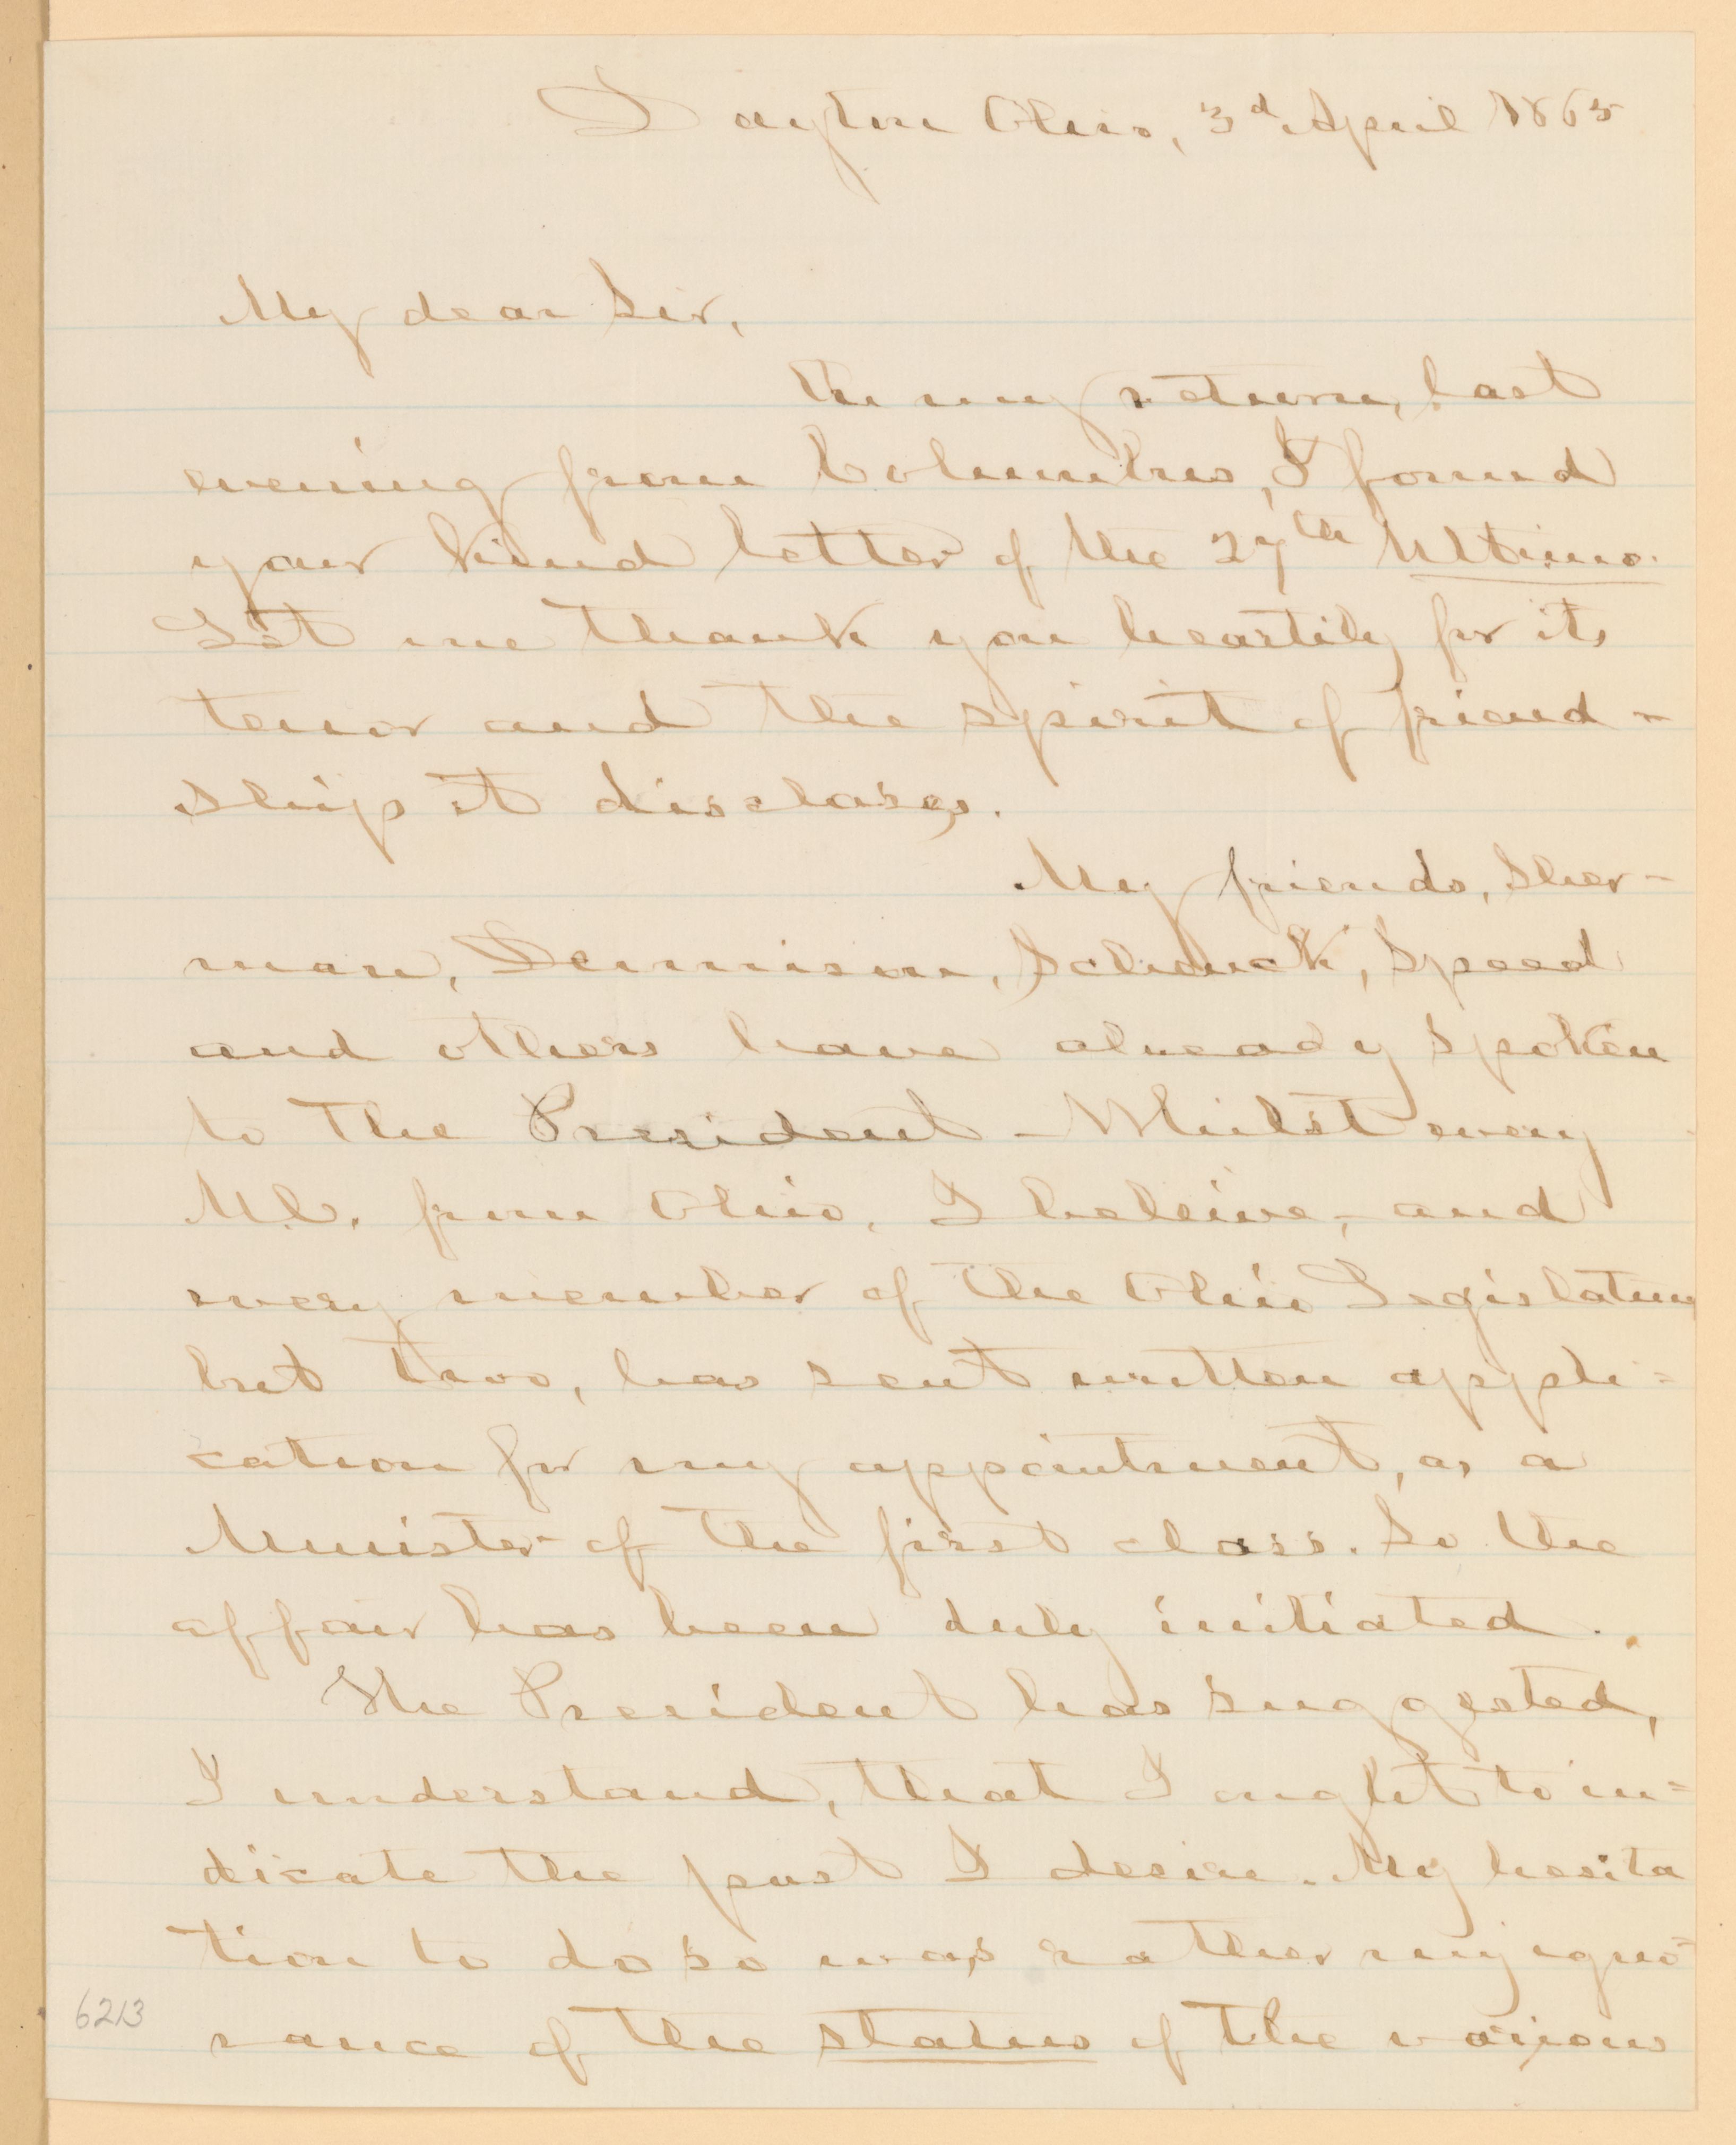 Dayton Ohio, 3d April 1865
My dear Sir,
On my return, last
evening from Columbus, I found
your kind letter of the 27th Ultimo.
Let me thank you heartily for its
tenor and the spirit of friend-
ship it discloses.
My friends, Sher-
man, Dennison, Schenck, Speed
and others have already spoken
to The President - Whilst every
M.C. from Ohio, I beleive, and
every member of the Ohio Legislature
but two, has sent written appli-
cation for my appointment, as a
Minister of the first class. So the
affair has been duly initiated.
The President has suggested,
I understand, that I ought to in-
dicate the post I desire. My hesita
tion to do so was rather my igno-
rance of the status of the various
6213